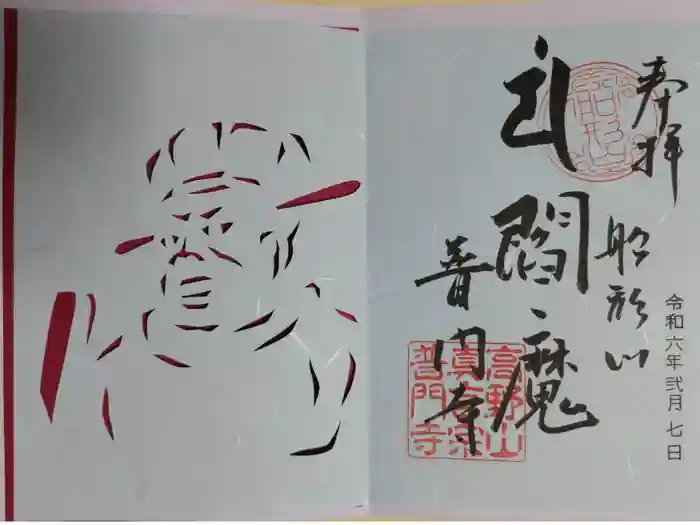 奉拝
船形山
閻魔
普門寺
令和六年弐月七日
船形山
高野山
真言宗
普門寺